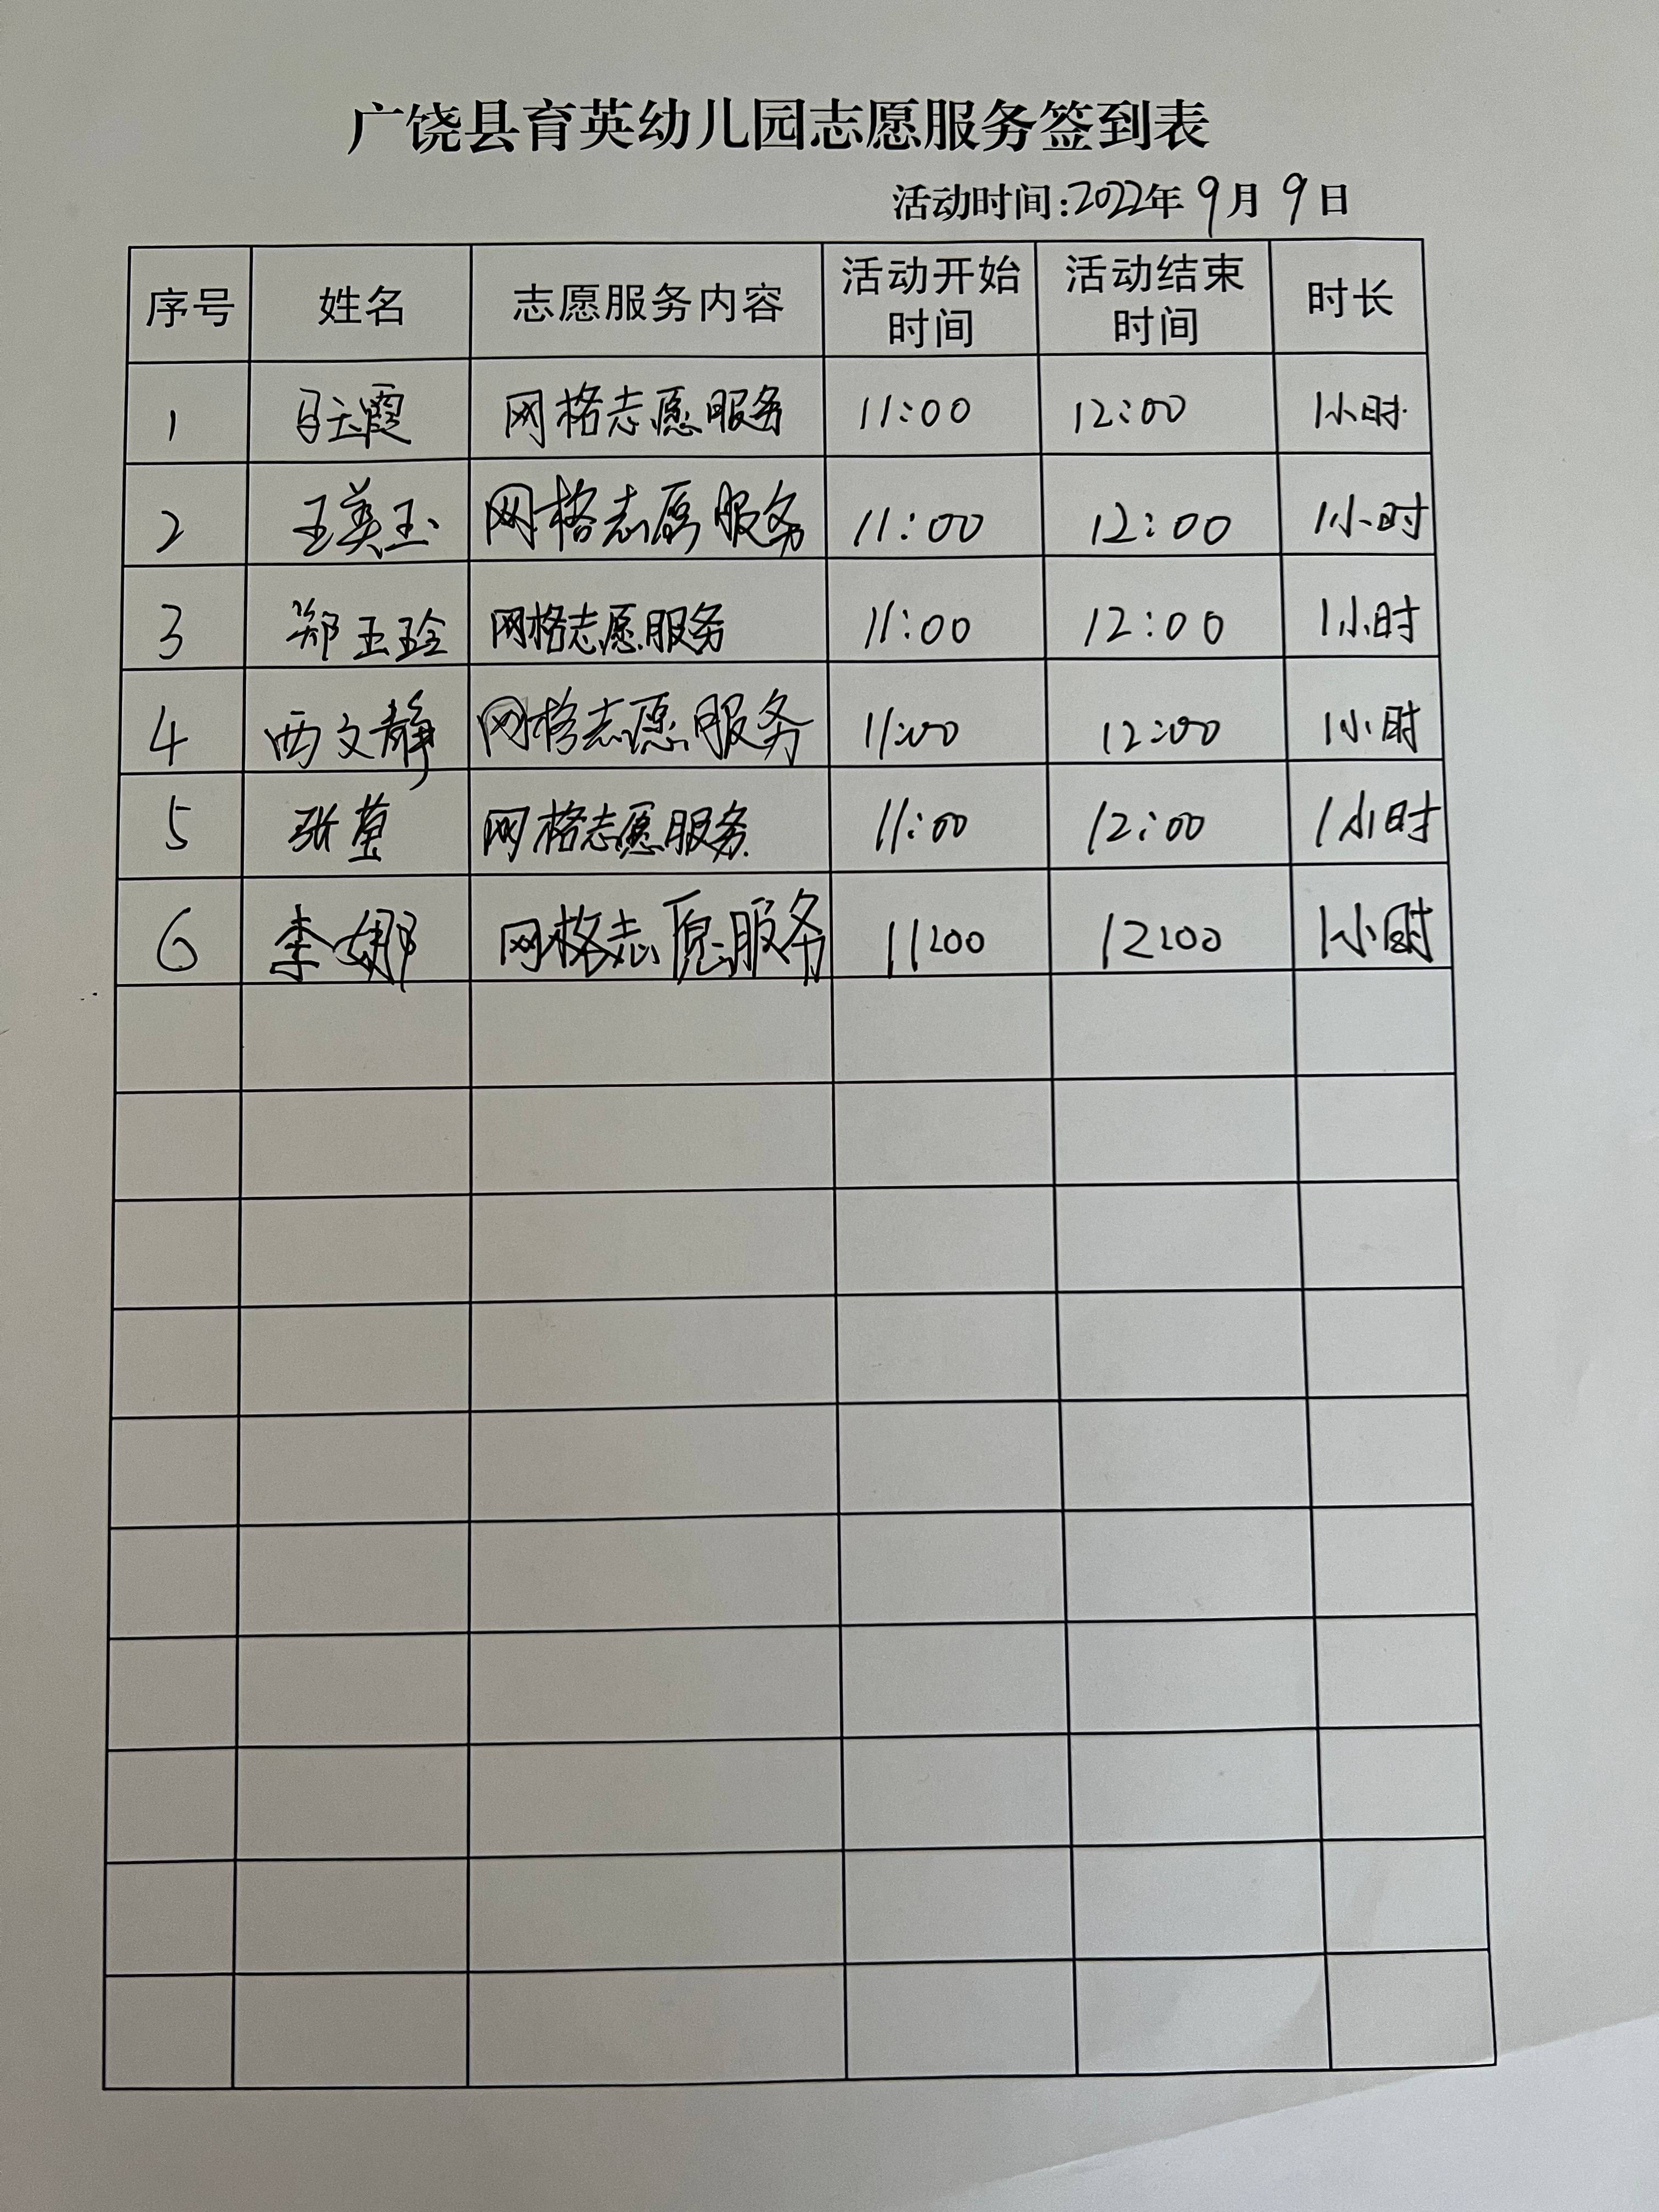 广饶县育英幼儿园志愿服务签到表
活动时间:2022年 9月 9日
序号 姓名 志愿服务内容 活动开始时间 活动结束时间 时长
1 马玉霞 网格志愿服务 11:00 12:00 1小时
2 王美玉 网格志愿服务 11:00 12:00 1小时
3 郑玉玲 网格志愿服务 11:00 12:00 1小时
4 西文静 网格志愿服务 11:00 12:00 1小时
5 张莹 网格志愿服务 11:00 12:00 1小时
6 李娜 网格志愿服务 11:00 12:00 1小时